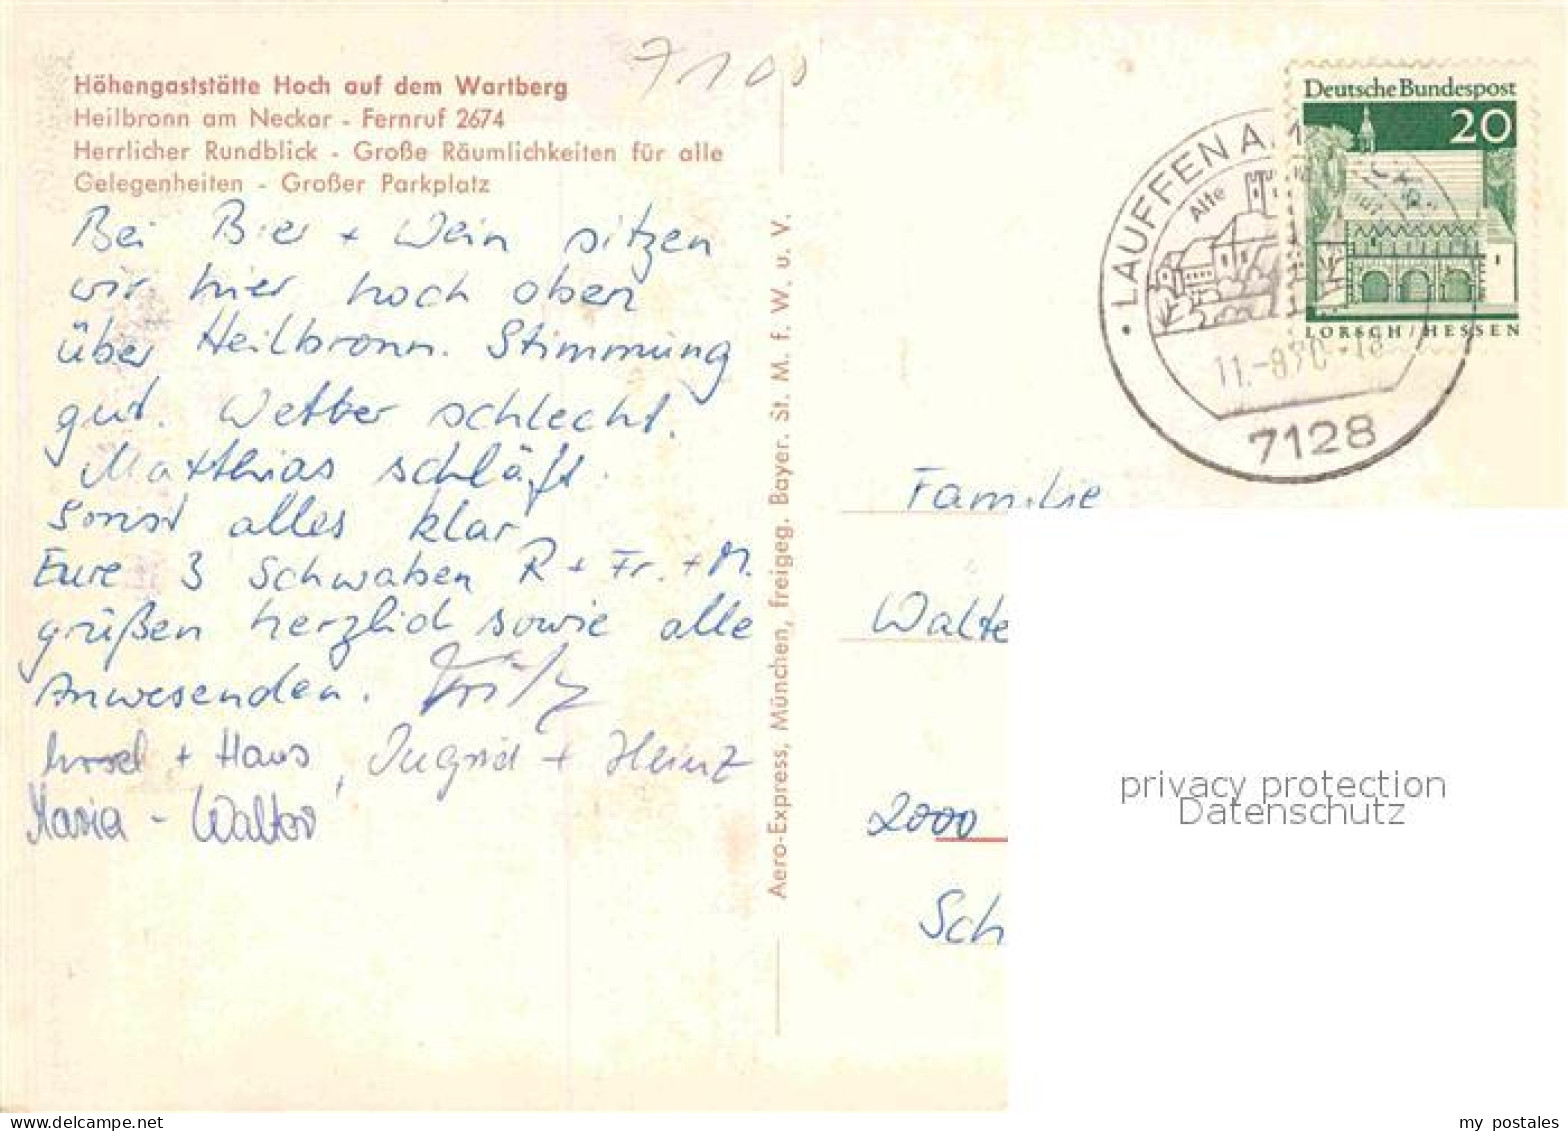 7100
Höhengaststätte Hoch auf dem Wartberg
Heilbronn am Neckar - Fernruf 2674
Herrlicher Rundblick - Große Räumlichkeiten für alle
Gelegenheiten - Großer Parkplatz
Bei Bier + Wein sitzen
wir hier hoch oben
über Heilbronn. Stimmung
gut. Wetter schlecht.
Matthias schläft.
Sonst alles klar
Eure 3 Schwaben R + Fr. + M.
grüßen herzlich sowie alle
Anwesenden. Fritz
+ Hans, Ingrid + Heinz
Maria - Walter
Aero-Express, München, freigeg. Bayer. St. M. f. W. u. V.
Deutsche Bundespost
20
LORSCH/HESSEN
LAUFFEN A.
Alte
11.-8.70.-18
7128
Familie
Walte
2000
Sch
privacy protection
Datenschutz
my postales